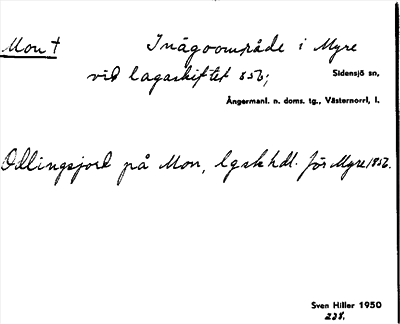 Mon † Inägoområde i Myre
vid lagaskiftet 1856;
Sidensjö sn,
Ångermanl. n. doms. tg., Västernorrl, l.
Odlingsjord på Mon, lgskhdl. för Myre 1856.
Sven Hiller 1950
238.